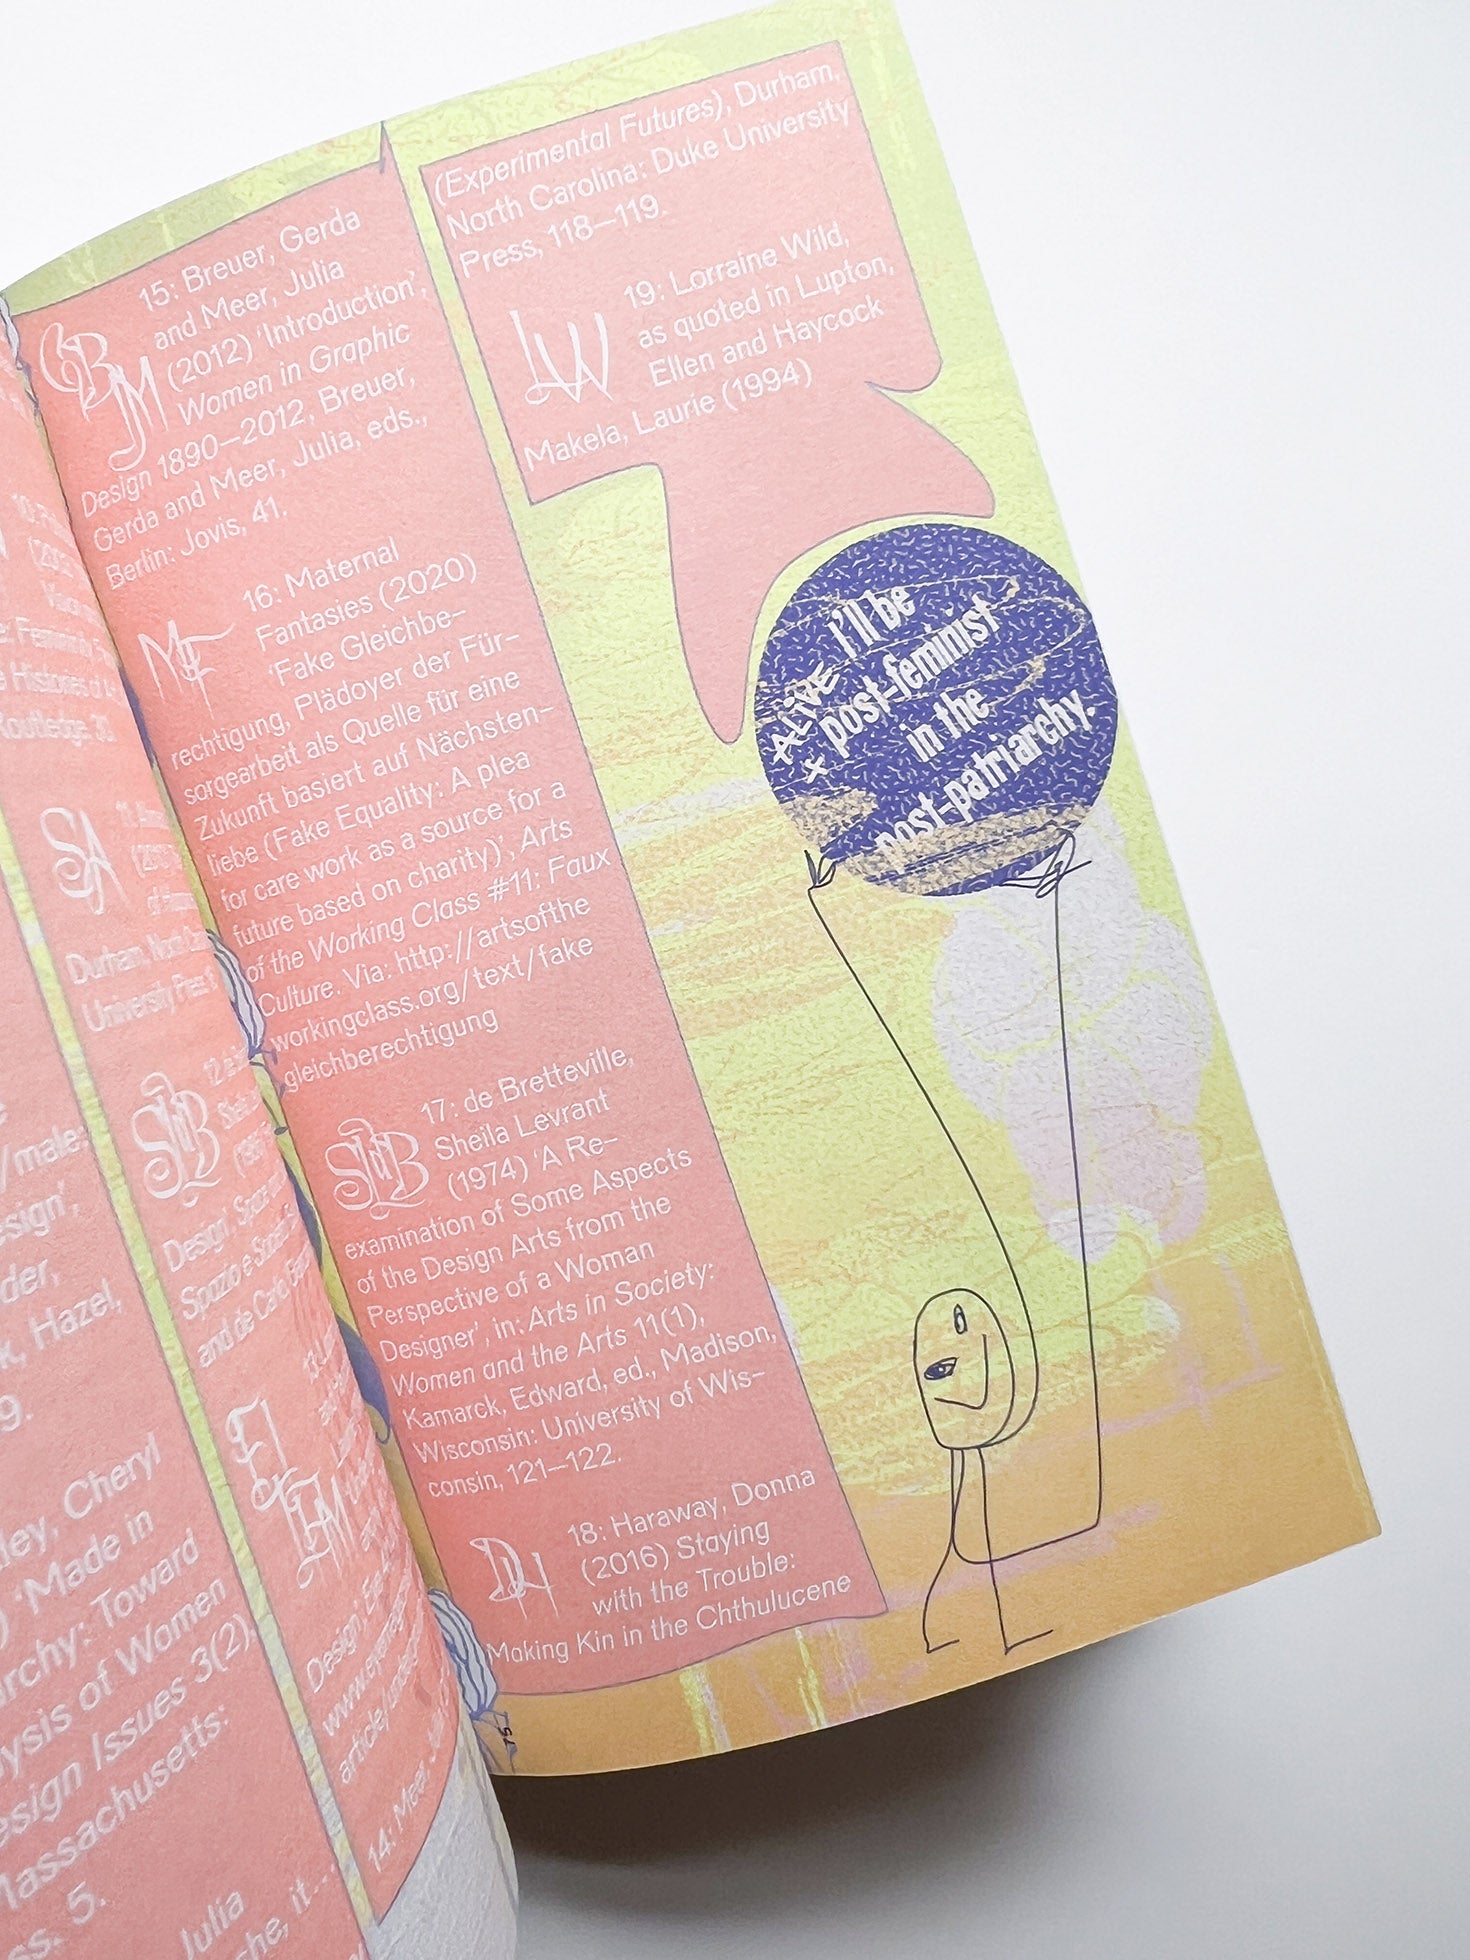 15: Breuer, Gerda
and Meer, Julia
(2012) ‘Introduction’,
Women in Graphic
Design 1890–2012, Breuer,
Gerda and Meer, Julia, eds.,
Berlin: Jovis, 41.
16: Maternal
Fantasies (2020)
‘Fake Gleichbe-
rechtigung, Plädoyer der Für-
sorgearbeit als Quelle für eine
Zukunft basiert auf Nächsten-
liebe (Fake Equality: A plea
for care work as a source for a
future based on charity)’, Arts
of the Working Class #11: Faux
Culture. Via: http://artsofthe
workingclass.org/text/fake
gleichberechtigung
17: de Bretteville,
Sheila Levrant
(1974) ‘A Re-
examination of Some Aspects
of the Design Arts from the
Perspective of a Woman
Designer’, in: Arts in Society:
Women and the Arts 11(1),
Kamarck, Edward, ed., Madison,
Wisconsin: University of Wis-
consin, 121–122.
18: Haraway, Donna
(2016) Staying
with the Trouble:
Making Kin in the Chthulucene
(Experimental Futures), Durham,
North Carolina: Duke University
Press, 118–119.
LW
19: Lorraine Wild,
as quoted in Lupton,
Ellen and Haycock
Makela, Laurie (1994)
I'll be
ALiVE
x post-feminist
in the
post-patriarchy.
MF
DH
SA
Durham:
University Press
Design’,
/male:
Hazel,
9.
Cheryl
‘Made in
Toward
of Women
Issues 3(2),
Massachusetts:
5.
Julia
14: Meer,